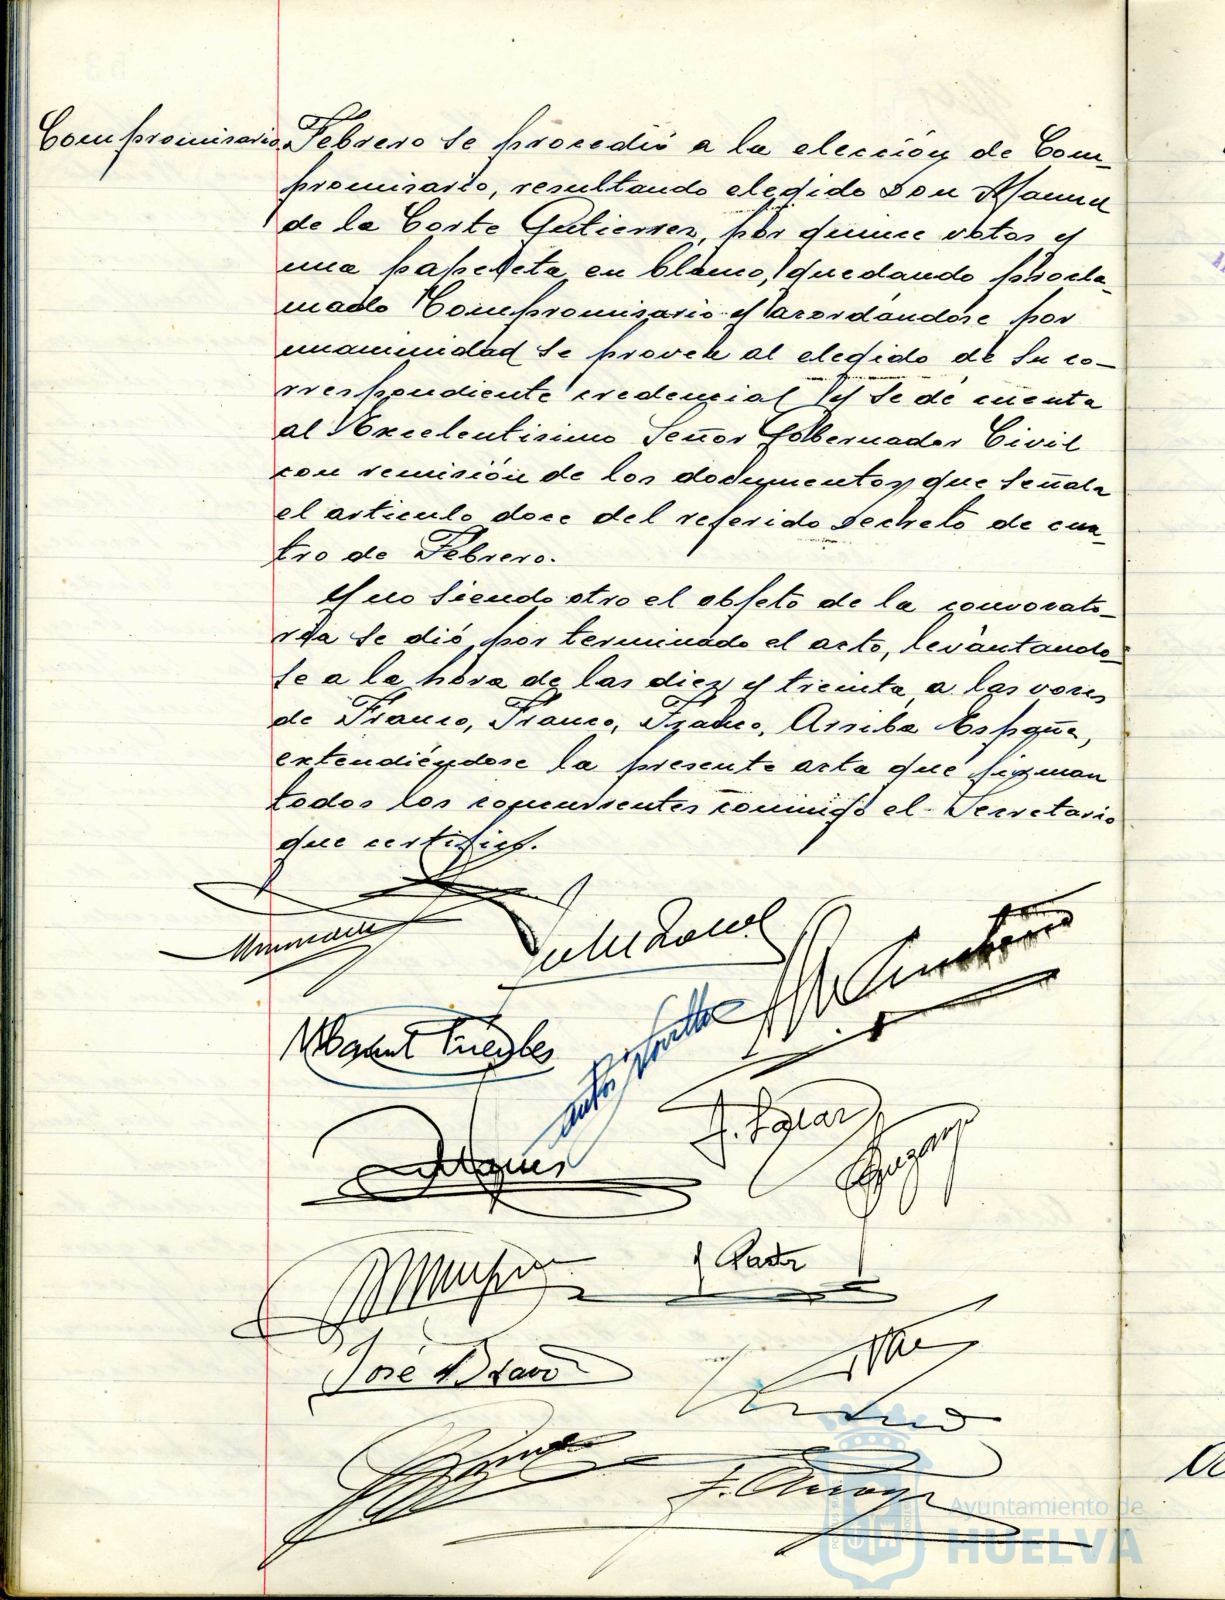 Compromisario
Febrero se procedió a la elección de Com-
promisario, resultando elegido Don Manuel
de la Corte Gutierrez, por quince votos y
una papeleta en blanco, quedando procla-
mado Compromisario y acordándose por
unanimidad se provea al elegido de su co-
rrespondiente credencial y se dé cuenta
al Excelentisimo Señor Gobernador Civil
con remisión de los documentos que señala
el articulo doce del referido Decreto de cua-
tro de Febrero.
Y no siendo otro el objeto de la convocato-
ria se dió por terminado el acto, levantando-
se a la hora de las diez y treinta, a las voces
de Franco, Franco, Franco, Arriba España,
extendiéndose la presente acta que firman
todos los concurrentes conmigo el Secretario
que certifico.
J. Pastor
José Bravo
Ayuntamiento de
HUELVA